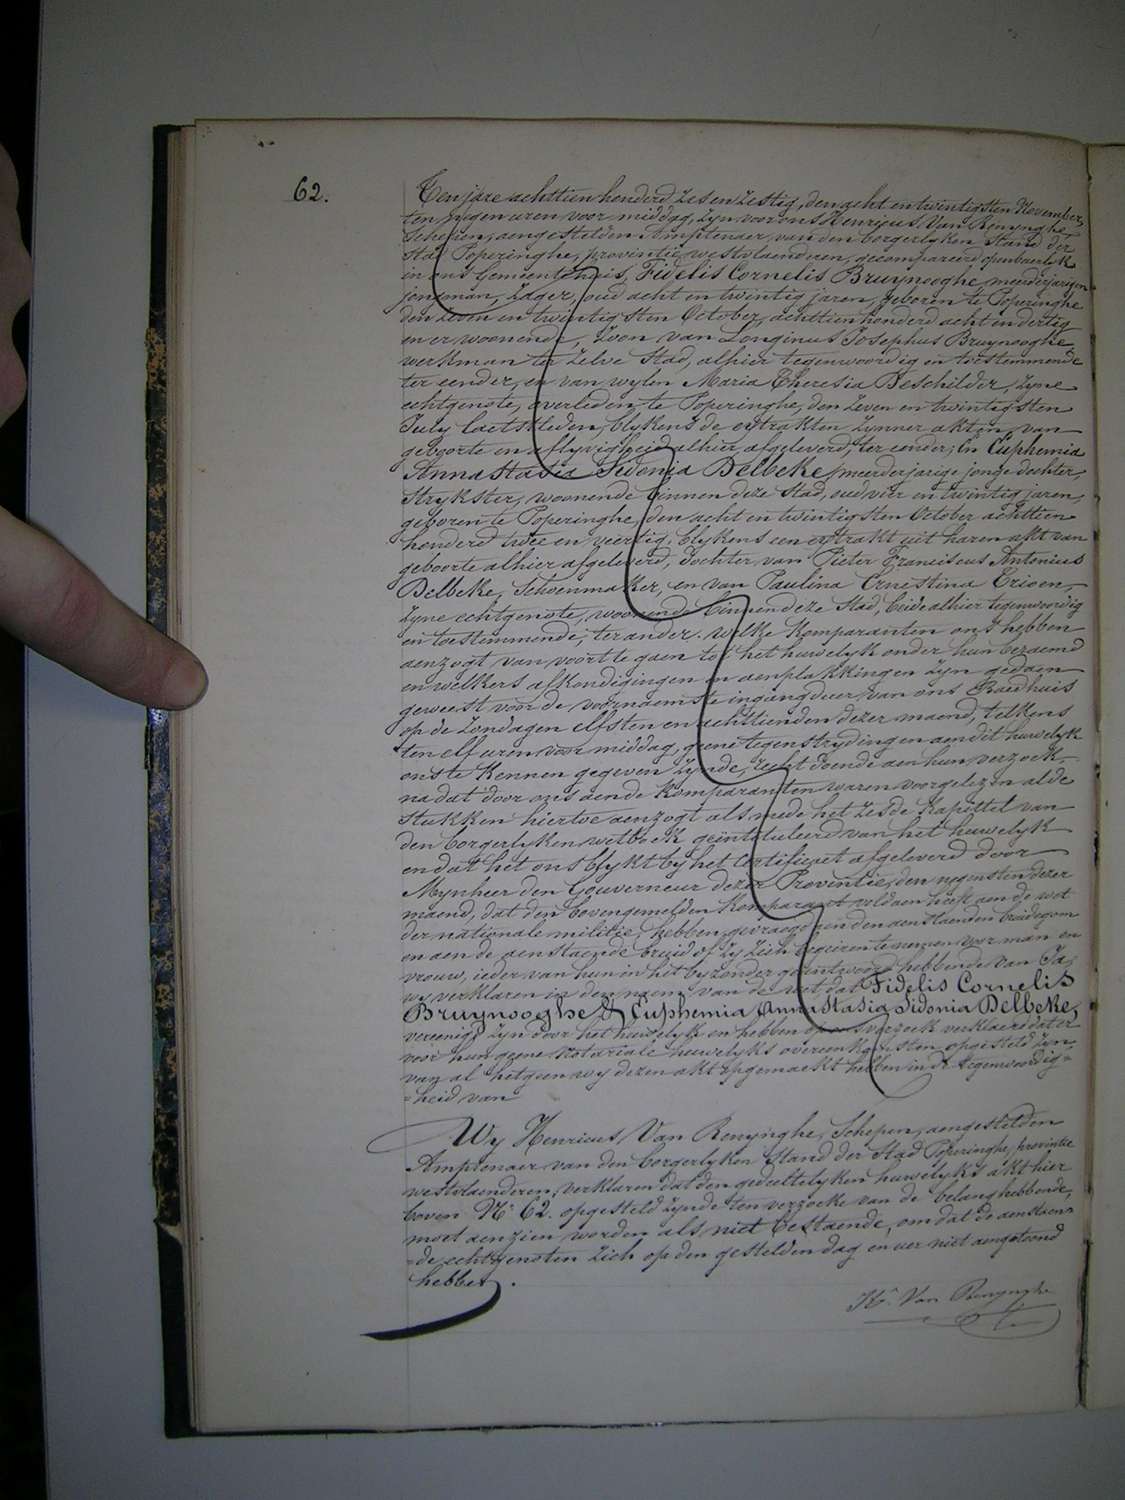 62.
Ten jare achttien honderd zes en zestig, den acht en twintigsten November,
ten negen uren voor middag, zyn voor ons Henricus Van Renynghe,
Schepen, aengestelden Amptenaer van den borgerlyken Stand der
Stad Poperinghe, provintie westvlaenderen, gecompareerd openbaerlyk
in ons Gemeentehuis, Fidelis Cornelis Bruynooghe, meerderjarigen
jongman, Zager, oud acht en twintig jaren, geboren te Poperinghe
den zeven en twintigsten October, achttien honderd acht en dertig
en er woonende, Zoon van Longinus Josephus Bruynooghe,
werkman ter zelve Stad, alhier tegenwoordig en toestemmende
ter eender, en van wylen Maria Theresia Beschilder, zyne
echtgenote, overleden te Poperinghe, den Zeven en twintigsten
July laetstleden, blykens de extrakten zynner akten van
geboorte en aflyvigheid alhier afgeleverd, ter eender; En Euphemia
Annastasia Sidonia Delbeke, meerderjarige jonge dochter,
Strykster, woonende binnen deze Stad, oud vier en twintig jaren,
geboren te Poperinghe, den acht en twintigsten October achttien
honderd twee en veertig, blykens een extrakt uit haren akt van
geboorte alhier afgeleverd, dochter van Pieter Franciscus Antonius
Delbeke, Schoenmaker, en van Paulina Ernestina Crioen,
Zyne echtgenote, woonende binnen deze Stad, beide alhier tegenwoordig
en toestemmende, ter ander. welke komparanten ons hebben
aenzogt van voort te gaen tot het huwelyk onder hun beraemd
en welkers afkondigingen en aenplakkingen zyn gedaen
geweest voor de voornaemste ingangdeur van ons Raedhuis
op de Zondagen elfsten en achttienden dezer maend, telkens
ten elf uren voor middag, geene tegenstrydingen aen dit huwelyk
ons te kennen gegeven zynde, recht doende aen hun verzoek,
na dat door ons aen de komparanten waren voorgelezen al de
stukken hiertoe aenzogt als mede het zesde kapittel van
den borgerlyken wetboek geïntituleerd van het huwelyk
en dat het ons blykt by het certificaet afgeleverd door
Mynheer den Gouverneur dezer Provintie, den negensten dezer
maend, dat den bovengemelden komparant voldaen heeft aen de wet
der nationale militie, hebben gevraegd aen den aenstaenden bruidegom
en aen de aenstaende bruid of zy zich begeiren te nemen voor man en
vrouw, ieder van hun in het byzonder geantwoord hebbende van Ja,
wy verklaren in den naem van de wet dat Fidelis Cornelis
Bruynooghe & Euphemia Annastasia Sidonia Delbeke,
vereenigt zyn door het huwelyk en hebben op ons verzoek verklaerd dat er
voor hun geene Notariale huwelyks overeenkomsten opgesteld zyn,
van al hetgeen wy dezen akt opgemaekt hebben in de tegenwoordig=
=heid van
Wy Henricus Van Renynghe, Schepen, aengestelden
Amptenaer van den borgerlyken Stand der Stad Poperinghe, provintie
westvlaenderen, verklaren dat den gedeeltelyken huwelyks akt hier
boven No. 62. opgesteld zynde ten verzoeke van de belanghebbende,
moet aenzien worden als niet bestaende, om dat de aenstaen=
=de echtgenoten zich op den gestelden dag en uer niet aengetoond
hebben.
Hs. Van Renynghe